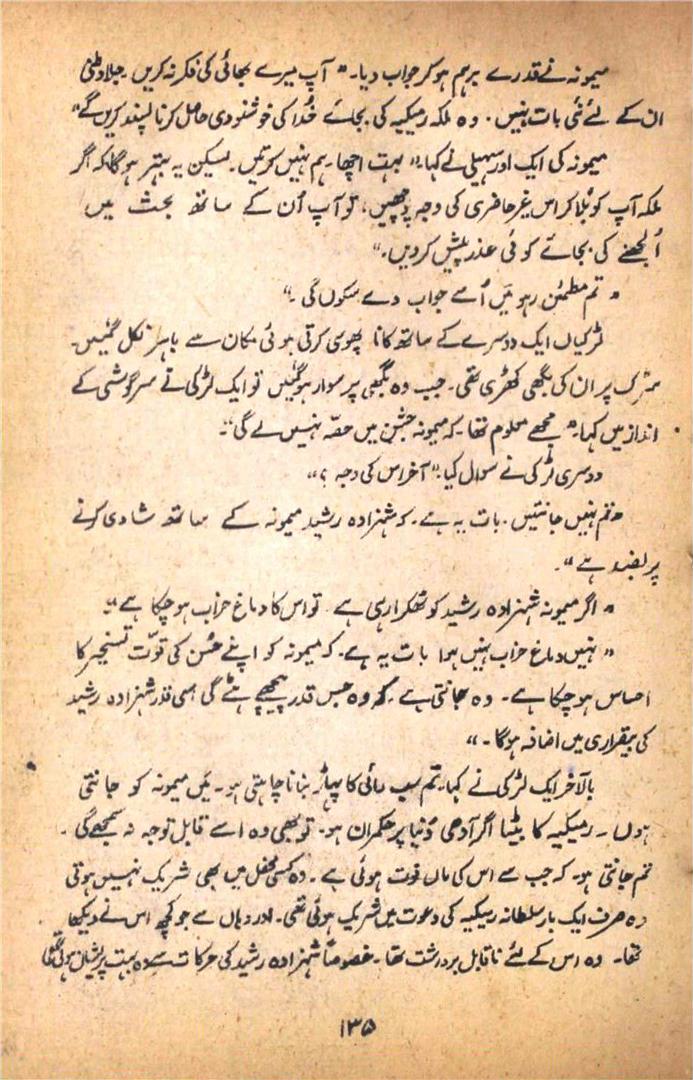 میمونہ نے قدرے برہم ہو کر جواب دیا۔ "آپ میرے بھائی کی فکر نہ کریں۔ جلاوطنی
ان کے لئے نئی بات نہیں۔ وہ ملکہ رمیکیہ کی بجائے خُدا کی خوشنودی حاصل کرنا پسند کریں گے"
میمونہ کی ایک اور سہیلی نے کہا۔ "بہت اچھا۔ ہم نہیں کرتیں۔ لیکن یہ بہتر ہو گا کہ اگر
ملکہ آپ کو بُلا کر اس غیر حاضری کی وجہ پوچھیں، تو آپ اُن کے ساتھ بحث میں
اُلجھنے کی بجائے کوئی عذر پیش کر دیں۔"
"تم مطمئن رہو میَں اُسے جواب دے سکوں گی۔"
لڑکیاں ایک دوسرے کے ساتھ کانا پھوسی کرتی ہوئی مکان سے باہر نکل گئیں۔
سڑک پر ان کی بگھی کھڑی تھی۔ جب وہ بگھی پر سوار ہو گئیں تو ایک لڑکی نے سرگوشی کے
انداز میں کہا۔ "مجھے معلوم تھا۔ کہ میمونہ جشن میں حصّہ نہیں لے گی"۔
دوسری لڑکی نے سوال کیا۔ "آخر اس کی وجہ؟"
"تم نہیں جانتیں۔ بات یہ ہے۔ کہ شہزادہ رشید میمونہ کے ساتھ شادی کرنے
پر بضد ہے"۔
"اگر میمونہ شہزادہ رشید کو ٹھکرا رہی ہے تو اس کا دماغ خراب ہو چکا ہے"۔
"نہیں دماغ خراب نہیں ہوا بات یہ ہے۔ کہ میمونہ کو اپنے حُسن کی قوّت تسخیر کا
احساس ہو چکا ہے۔ وہ جانتی ہے۔ کہ وہ جس قدر پیچھے ہٹے گی اسی قدر شہزادہ رشید
کی بیقراری میں اضافہ ہو گا۔"
بالآخر ایک لڑکی نے کہا۔ تم سب رائی کا پہاڑ بنانا چاہتی ہو۔ میَں میمونہ کو جانتی
ہوں۔ رمیکیہ کا بیٹا اگر آدھی دُنیا پر حکمران ہو۔ تو بھی وہ اسے قابل توجہ نہ سمجھے گی۔
تم جانتی ہو۔ کہ جب سے اس کی ماں فوت ہوئی ہے۔ وہ کسی محفل میں بھی شریک نہیں ہوتی
وہ صرف ایک بار سلطانہ رمیکیہ کی دعوت میں شریک ہوئی تھی۔ اور وہاں سے جو کچھ اس نے دیکھا
تھا۔ وہ اس کے لئے ناقابل برداشت تھا۔ خصوصاً شہزادہ رشید کی حرکات سے وہ بہت پریشان ہوئی تھی
۱۳۵